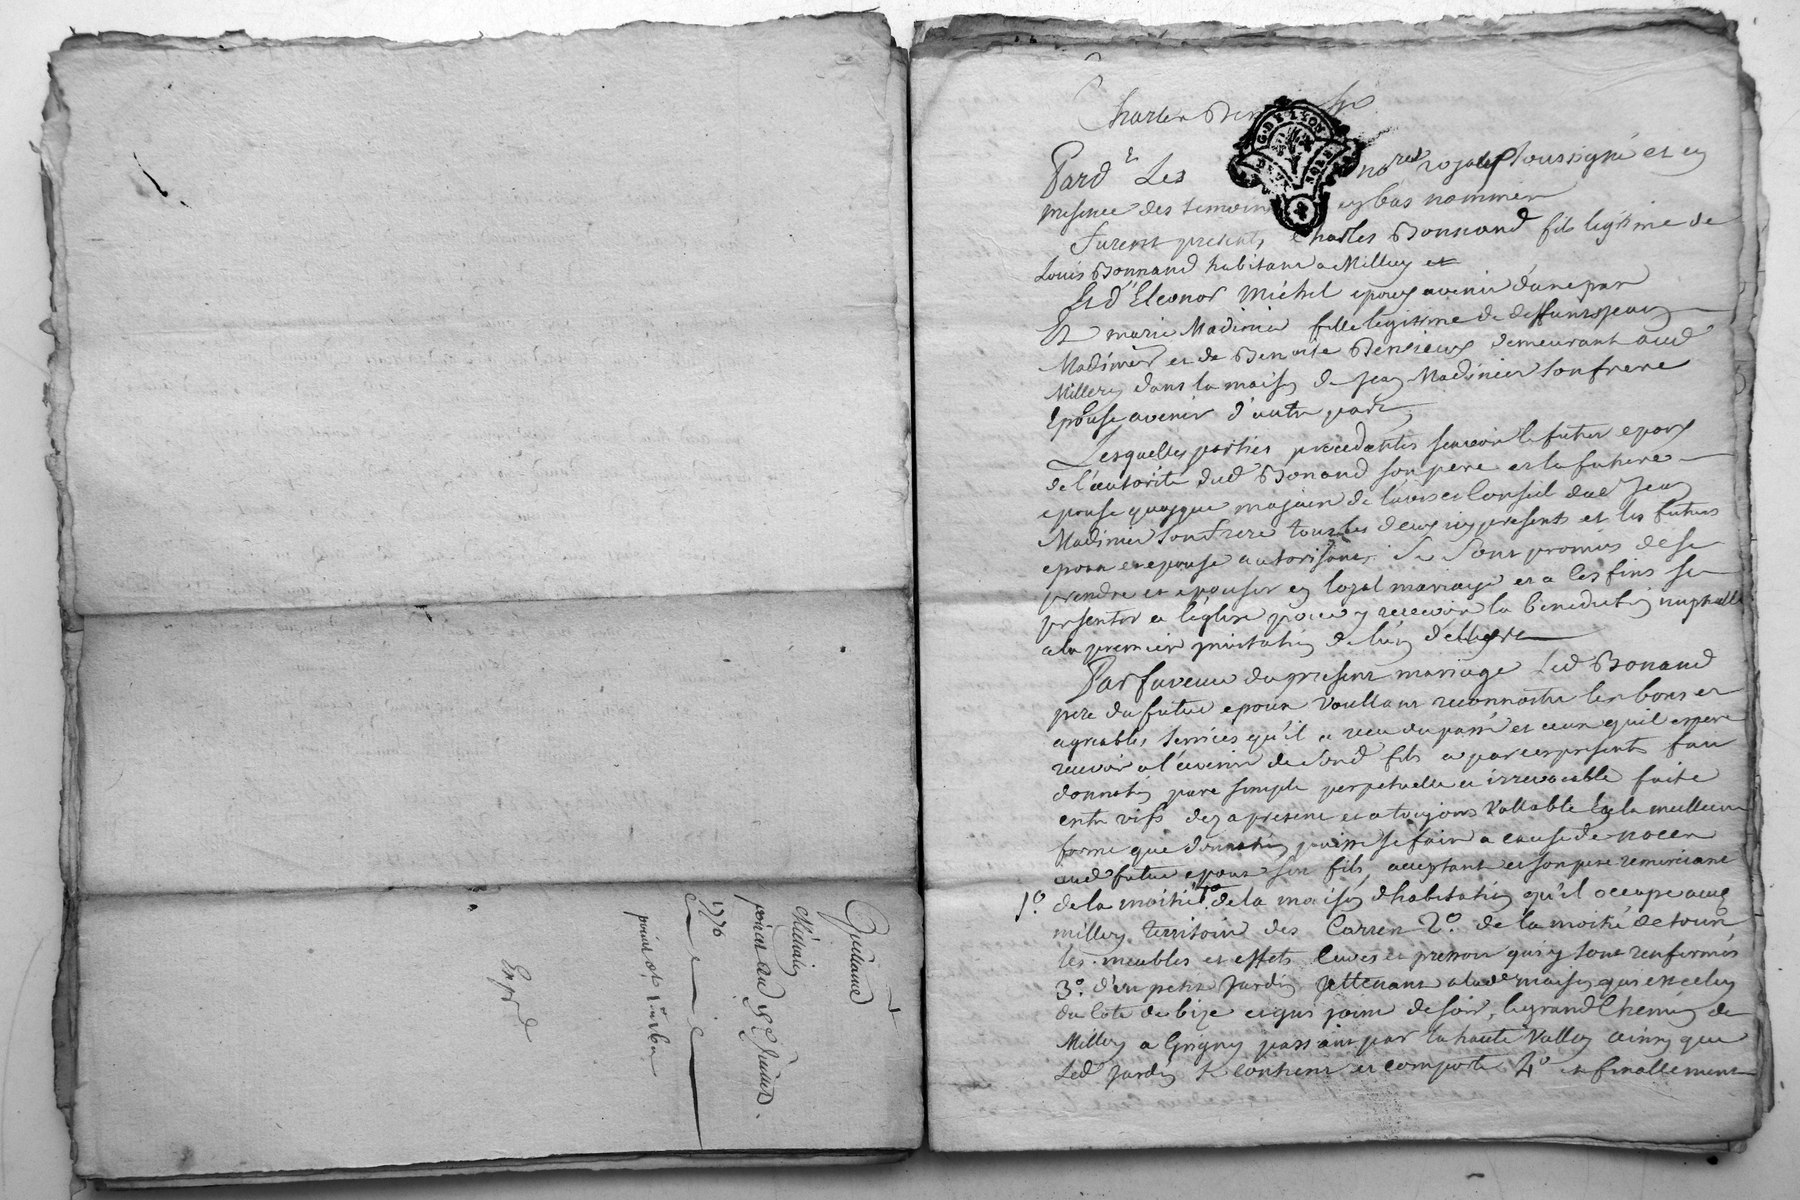 Quittance
1776
Exp.d
G. DE LYON
Pard.t Les no.res royaux soussigné et en
presence des temoins cy bas nommer
Furent presents, Charles Bonnand fils legitime de
Louis Bonnand habitant a Millery et
Led. Eleonor Michel epoux avenir d'une par
Et marie Madinier fille legitime de deffunts jean
Madinier et de Benoite demeurant aud
Millery dans la maison de Jean Madinier son frere
Epouse avenir d'autre part
Lesquelles parties procedantes scavoir le futur epoux
de l'autorité dud Bonand son pere et la future
epouse quoyque majeure de l'avis et Conseil dud Jean
Madinier son frere tous les deux icy presents et les futurs
epoux et epouse autorisant, Se Sont promis de se
prendre et epouser en loyal mariage et a ces fins se
presenter a l'eglise pour y recevoir la benediction nuptialle
a la premier invitation de l'un d'eux
Par faveur du present mariage led Bonand
pere du futur epoux voullant reconnoitre les bons et
agreables services qu'il a recu du passé et ceux qu'il espere
recevoir a l'avenir de sond fils a par ces presents fait
donnation pure simple perpetuelle et irrevocable faite
entre vifs dez a present et a toujours vallable En la meilleure
forme que donnation puisse se faire a cause de noces
aud futur epoux son fils acceptant et son pere remerciant
1.o de la moitié de la maison d'habitation qu'il occupe aud
millery territoire des Carres 2.o de la moitié de tous
les meubles et effets Cuves et pressoir qui y sont renfermés
3.o d'un petit Jardin Attenant a lad maison qui est celuy
du Coté de bize et qui joint de soir, le grand Chemin de
Millery a Grigny passant par la haute Vallée ainsy que
Led Jardin se contient et comporte 4.o et finallement